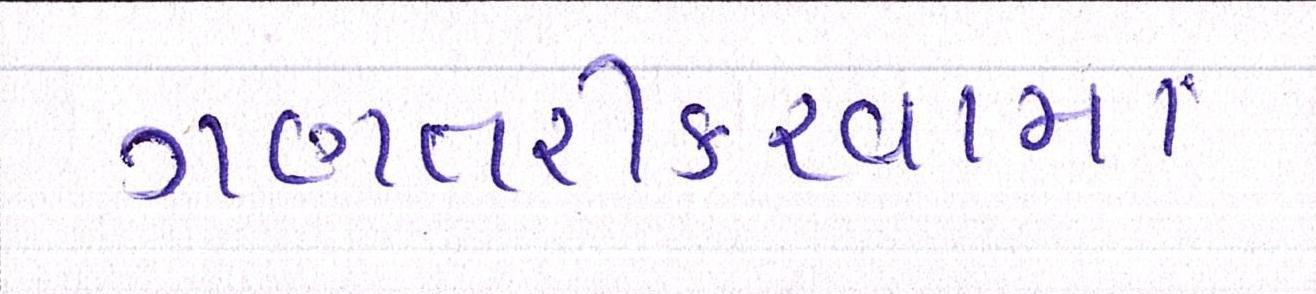 ગણતરીકરવામાં